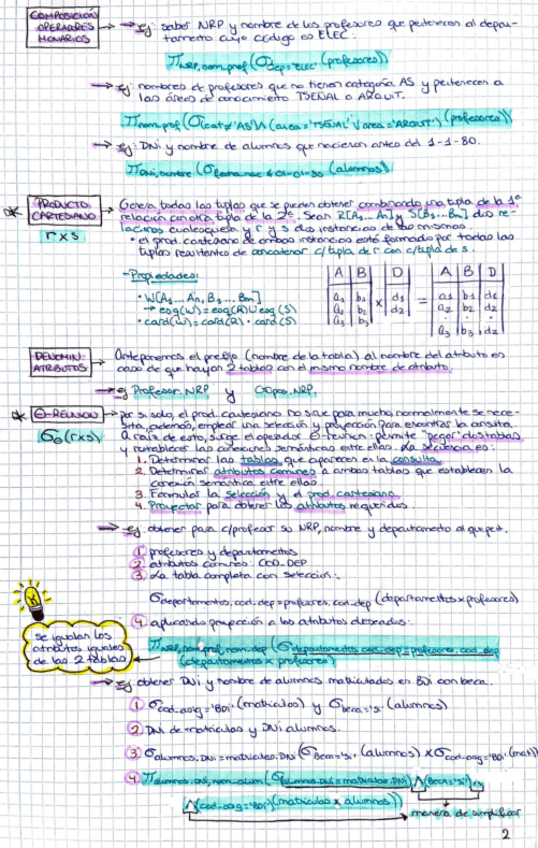 COMPOSICIÓN OPERADORES MONARIOS → ej: saber NRP y nombre de los profesores que pertenecen al depar-
tamento cuyo código es ELEC:
π NRP, nom.prof (σ dep='ELEC' (profesores))
→ ej: nombres de profesores que no tienen categoría AS y pertenecen a
las áreas de conocimiento TSEÑAL o ARQUIT.
π nom.prof (σ cat≠'AS' ∧ (area='TSEÑAL' ∨ area='ARQUIT') (profesores))
→ ej: DNi y nombre de alumnos que nacieron antes del 1-1-80.
π DNi, nombre (σ fecha.nac ≤ 01-01-80 (alumnos))
* PRODUCTO CARTESIANO → Genera todas las tuplas que se pueden obtener combinando una tupla de la 1ª
r x s
relación con otra tupla de la 2ª. Sean R[A1...An] y S[B1...Bm] dos re-
laciones cualesquiera y r y s dos instancias de las mismas.
• el prod. cartesiano de ambas instancias está formado por todas las
tuplas resultantes de concatenar c/tupla de r con c/tupla de s.
- Propiedades:
• W[A1...An, B1...Bm]
→ esq(W) = esq(R) ∪ esq(S)
• card(W) = card(R) · card(S)
A B D A B D
a1 b1 d1 a1 b1 d1
a2 b2 x d2 = a2 b2 d2
a3 b3 a3 b3 d2
DENOMIN. ATRIBUTOS → Anteponemos el prefijo (nombre de la tabla) al nombre del atributo en
caso de que hayan 2 tablas con el mismo nombre de atributo.
→ ej Profesor.NRP y Grpos.NRP.
* Θ-REUNION → por si solo, el prod. cartesiano no sirve para mucho, normalmente se nece-
σΘ(rxs)
sita, además, emplear una selección y proyección para encontrar la
A raíz de esto, surge el operador Θ-reunion: permite "pegar" dos tablas
y restablecer las conexiones semánticas entre ellas. La secuencia es:
1. Determinar las tablas que aparecen en la consulta.
2. Determinar atributos comunes a ambas tablas que establecen la
conexión semántica entre ellas.
3. Formular la selección y el prod. cartesiano
4. Proyectar para obtener los atributos requeridos.
→ ej: obtener para c/profesor su NRP, nombre y departamento al que pert.
1 profesores y departamentos
2 atributos comunes: COD.DEP
3 La tabla completa con selección:
σ departamentos.cod.dep=profesores.cod.dep (departamentos x profesores)
4 aplicando proyección a los atributos deseados:
se igualan los
atributos iguales
de las 2 tablas
π NRP, nom.prof, nom.dep (σ departamentos.cod.dep = profesores.cod.dep
(departamentos x profesores)
→ ej: obtener DNi y nombre de alumnos matriculados en BDi con beca.
1 σ cod.asig='BDi' (matriculas) y σ beca='si' (alumnos)
2 DNi de matriculas y DNi alumnos.
3 σ alumnos.DNi = matriculas.DNi (σ Beca='si' (alumnos) x σ cod-asig='BDi' (matri)
4 π alumnos.DNi, nom-alum (σ alumnos.DNi = matriculas.DNi) ∧ (Beca='si')
∧ (cod-asig='BDi') (matriculas x alumnos))
→ manera de simplificar
2